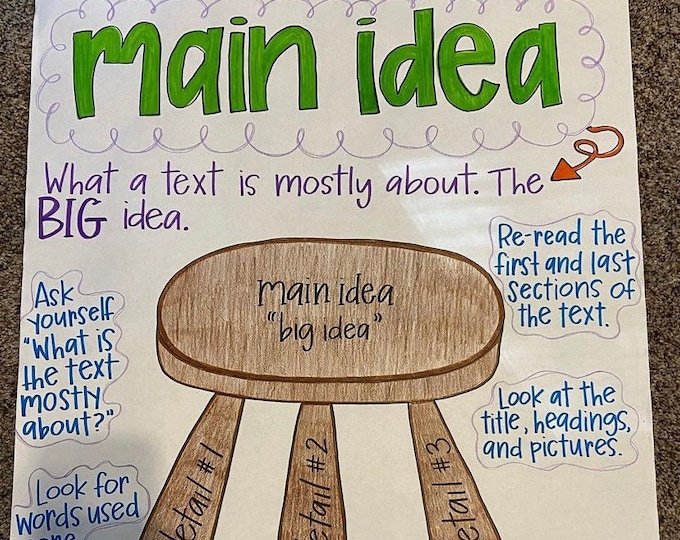 main idea
What a text is mostly about. The
BIG idea.
Re-read the
first and last
sections of
the text.
main idea
"big idea"
Ask
yourself
"What is
the text
mostly
about?"
Look at the
title, headings,
and pictures.
detail #1
detail #2
detail #3
Look for
words used